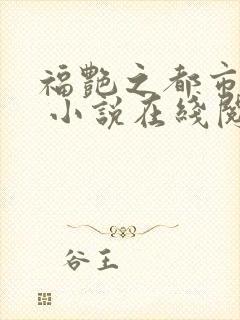 福艷之都市
小說在綫閱
谷王